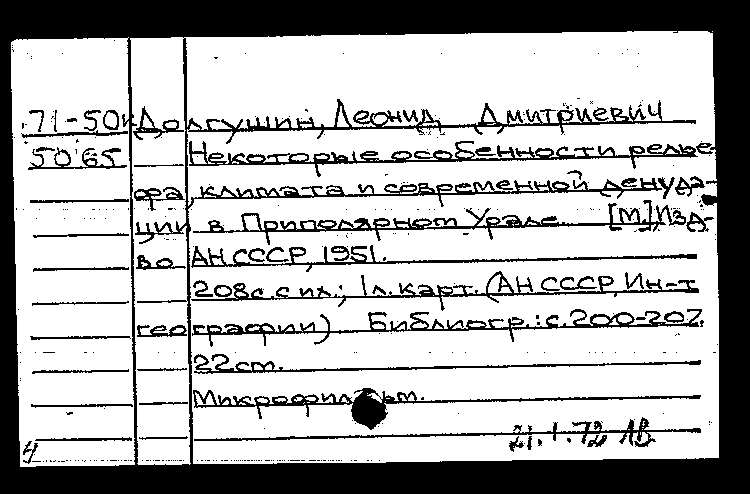 71-50к Долгушин, Леонид Дмитриевич
5065 Некоторые особенности релье-
фа, климата и современной денуда-
ции в Приполярном Урале. [М.] Изд-
во АН СССР, 1951.
208 с. с ил.; 1 л. карт. (АН СССР, Ин-т
географии) Библиогр.: с. 200-207.
22 см.
Микрофильм.
21.1.72 ЛВ
4